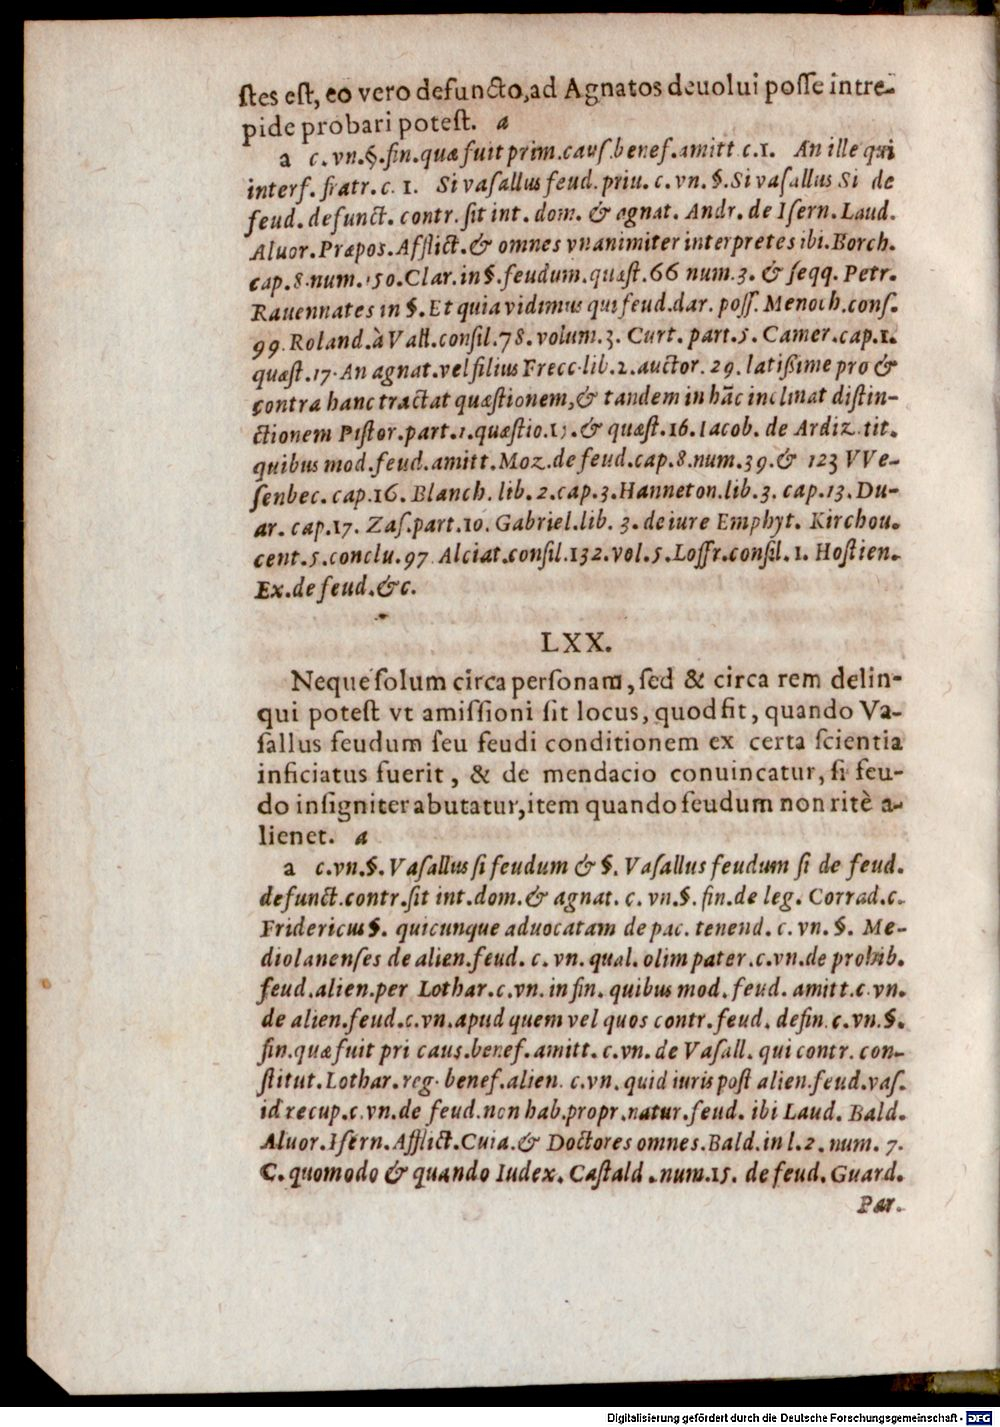 stes est, eo vero defuncto, ad Agnatos deuolui posse intre-
pide probari potest. a
a c. vn. §. fin. quæ fuit prim. caus. benef. amitt c. 1. An ille qui
interf. fratr. c. 1. Si vasallus feud. priu. c. vn. §. Si vasallus Si de
feud. defunct. contr. sit int. dom. & agnat. Andr. de Isern. Laud.
Aluor. Præpos. Afflict. & omnes vnanimiter interpretes ibi. Borch.
cap. 8. num. 150. Clar. in §. feudum. quæst. 66 num. 3. & seqq. Petr.
Rauennates in §. Et quia vidimus qui feud. dar. poss. Menoch. cons.
99. Roland. à Vall. consil. 78. volum. 3. Curt. part. 5. Camer. cap. 1.
quæst. 17. An agnat. vel filius Frecc. lib. 2. auctor. 29. latißime pro &
contra hanc tractat quæstionem, & tandem in hãc inclinat distin-
ctionem Pistor. part. 1. quæstio. 15. & quæst. 16. Iacob. de Ardiz. tit.
quibus mod. feud. amitt. Moz. de feud. cap. 8. num. 39. & 123 VVe-
senbec. cap. 16. Blanch. lib. 2. cap. 3. Hanneton. lib. 3. cap. 13. Du-
ar. cap. 17. Zas. part. 10. Gabriel. lib. 3. de iure Emphyt. Kirchou.
cent. 5. conclu. 97 Alciat. consil. 132. vol. 5. Loffr. consil. 1. Hostien.
Ex. de feud. &c.
LXX.
Neque solum circa personam, sed & circa rem delin-
qui potest vt amissioni sit locus, quod fit, quando Va-
sallus feudum seu feudi conditionem ex certa scientia
inficiatus fuerit, & de mendacio conuincatur, si feu-
do insigniter abutatur, item quando feudum non ritè a-
lienet. a
a c. vn. §. Vasallus si feudum & §. Vasallus feudum si de feud.
defunct. contr. sit int. dom. & agnat. c. vn. §. fin. de leg. Corrad. c.
Fridericus §. quicunque aduocatam de pac. tenend. c. vn. §. Me-
diolanenses de alien. feud. c. vn. qual. olim pater. c. vn. de prohib.
feud. alien. per Lothar. c. vn. in fin. quibus mod. feud. amitt. c. vn.
de alien. feud. c. vn. apud quem vel quos contr. feud. defin. c. vn. §.
fin. quæ fuit pri caus. benef. amitt. c. vn. de Vasall. qui contr. con-
stitut. Lothar. reg. benef. alien. c. vn. quid iuris post alien. feud. vas.
id recup. c. vn. de feud. non hab. propr. natur. feud. ibi Laud. Bald.
Aluor. Isern. Afflict. Cuia. & Doctores omnes. Bald. in l. 2. num. 7.
C. quomodo & quando Iudex. Castald. num. 15. de feud. Guard.
Par.
Digitalisierung gefördert durch die Deutsche Forschungsgemeinschaft - DFG